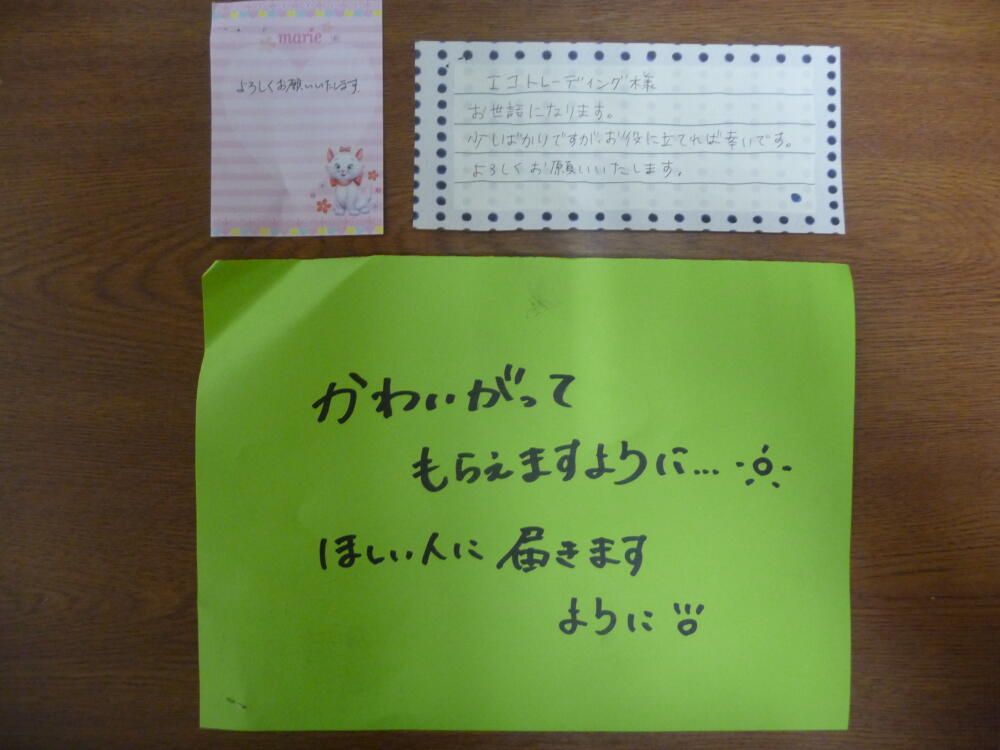 marie
よろしくお願いいたします。
エコトレーディング様
お世話になります。
少しばかりですが、お役に立てれば幸いです。
よろしくお願いいたします。
かわいがって
もらえますように...
ほしい人に届きます
ように